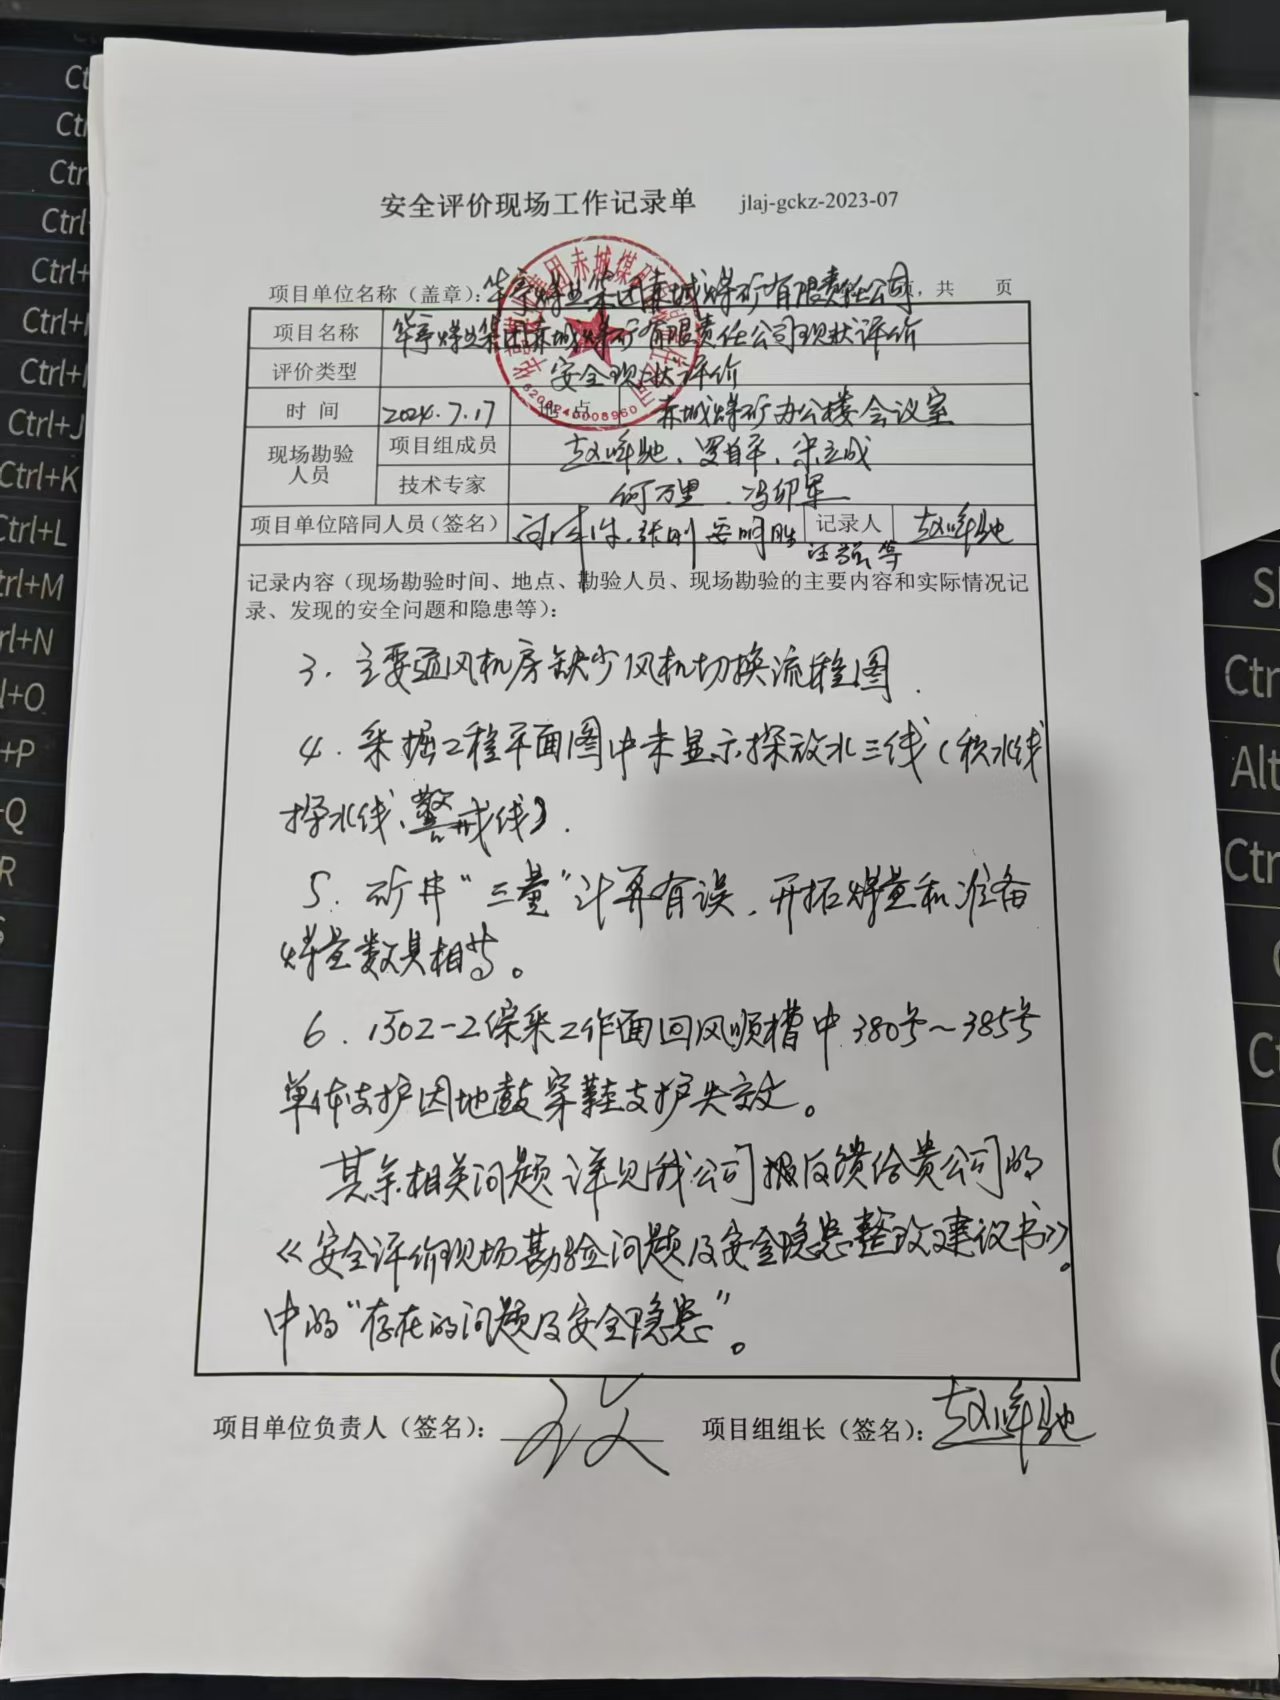 安全评价现场工作记录单 jlaj-gckz-2023-07
项目单位名称（盖章）：华亭煤业集团赤城煤矿有限责任公司 页，共 页
项目名称 华亭煤业集团赤城煤矿有限责任公司现状评价
评价类型 安全现状评价
时 间 2024.7.17 地 点 赤城煤矿办公楼会议室
现场勘验人员 项目组成员 赵峰驰、罗首平、宋立成
技术专家 何万里、冯卯军
项目单位陪同人员（签名） 张刚 安明胜 记录人 赵峰驰
汪强等
记录内容（现场勘验时间、地点、勘验人员、现场勘验的主要内容和实际情况记
录、发现的安全问题和隐患等）：
3．主要通风机房缺少风机切换流程图．
4．采掘工程平面图中未显示探放水三线（积水线
探水线、警戒线）．
5．矿井“三量”计算有误，开拓煤量和准备
煤量数具相等。
6．1502-2综采工作面回风顺槽中380号～385号
单体支护因地鼓穿鞋支护失效。
其余相关问题详见我公司报反馈给贵公司的
《安全评价现场勘验问题及安全隐患整改建议书》。
中的“存在的问题及安全隐患”。
项目单位负责人（签名）： 项目组组长（签名）：赵峰驰
Ctrl+J
Ctrl+K
Ctrl+L
Ctrl+M